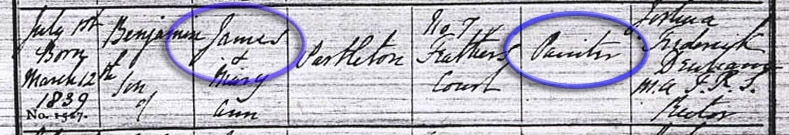 July 1st
Born
March 12th
1839
No. 1567.
Benjamin
Son
of
James
&
Mary
Ann
Partleton
No. 7
Feathers
Court
Painter
Joshua
Frederick
Denham
M.A. F.R.S.
Rector